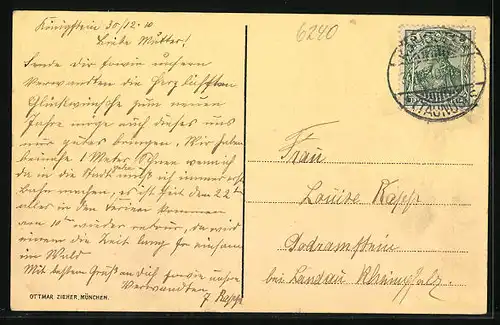 Königstein 30/12.10
Liebe Mutter!
Sende dir sowie unsern
Verwandten die herzlichsten
Glückwünsche zum neuen
Jahre möge auch dieses uns
nur gutes bringen. Wir haben
beinahe 1 Meter Schnee wenn ich
da in die Stadt gehe muß ich immer erst
bahn machen, es ist seit dem 22ten
alles in den Ferien kommen
am 10ten wieder retour, da wird
einem die Zeit lang so einsam
im Wald
Mit besten Gruß an dich sowie unsre
Verwandten
F. Rapp
OTTMAR ZIEHER, MÜNCHEN.
6240
TAUNUS
Frau
Louise Rapp
Godramstein
bei Landau Rheinpfalz.